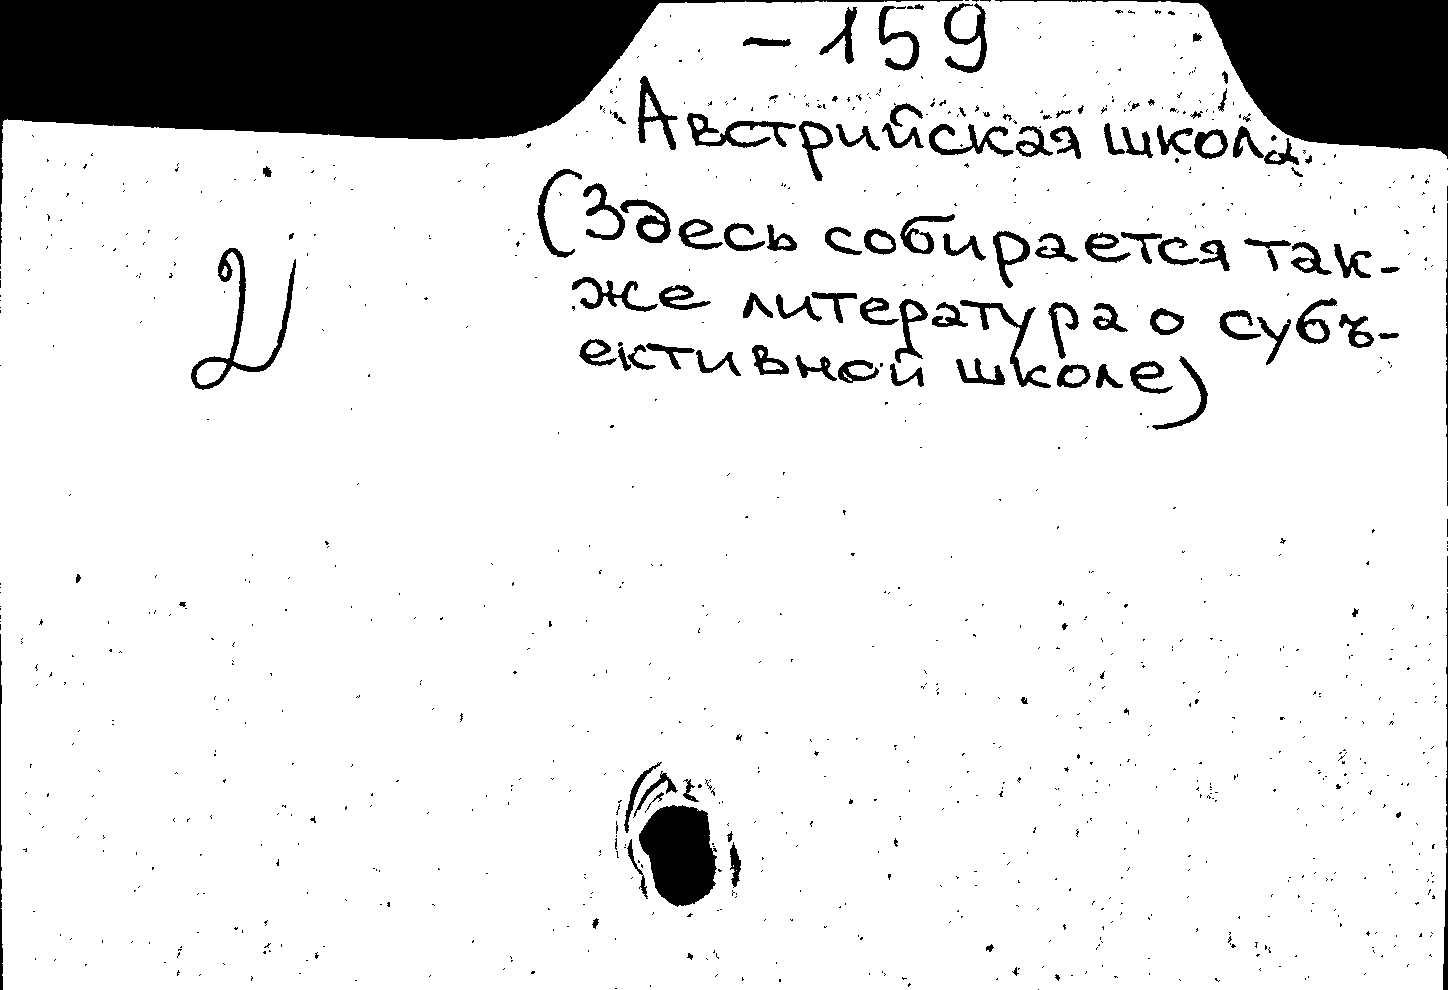 - 159
Австрийская школа
(Здесь собирается так-
же литература о субъ-
ективной школе)